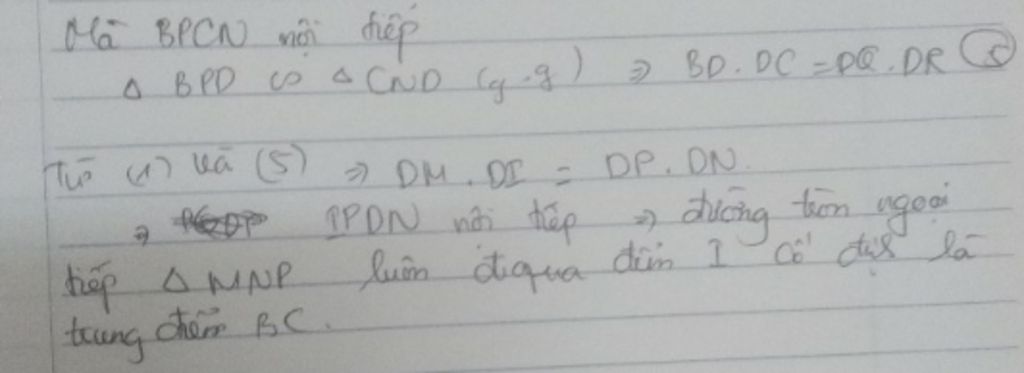 Mà BPCN nội tiếp
Δ BPD ∽ Δ CND (g.g) ⇒ BD.DC = DQ.DR (5)
Từ (1) và (5) ⇒ DM.DI = DP.DN.
⇒ IPDN nội tiếp ⇒ đường tròn ngoại
tiếp Δ MNP luôn đi qua điểm I cố định là
trung điểm BC.